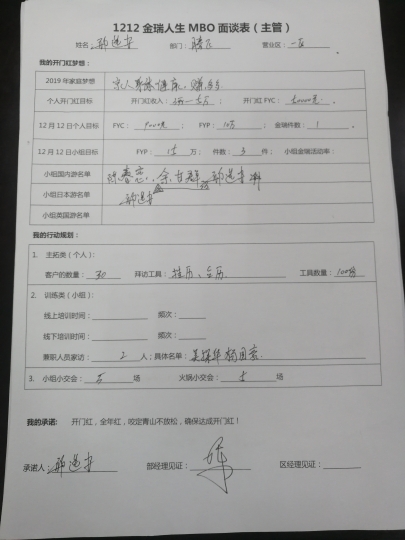 1212 金瑞人生 MBO 面谈表（主管）
姓名： 部门：腾飞 营业区：一区
我的开门红梦想：
2019年家庭梦想 家人身体健康，赚多多
个人开门红目标 开门红收入： 开门红 FYC：
12 月 12 日个人目标 FYC：9000元； FYP：10万； 金瑞件数：1。
12 月 12 日小组目标 FYP：15 万； 件数：3 件； 小组金瑞活动率：
小组国内游名单
小组日本游名单
小组英国游名单
我的行动规划：
1. 主拓类（个人）：
客户的数量：30 拜访工具：挂历、台历. 工具数量：100份
2. 训练类（小组）：
线上培训时间： 频次：
线下培训时间： 频次：
兼职人员家访： 2 人；具体名单：
3. 小组小交会： 5 场 火锅小交会： 5 场
我的承诺： 开门红，全年红，咬定青山不放松，确保达成开门红！
承诺人： 部经理见证： 区经理见证：